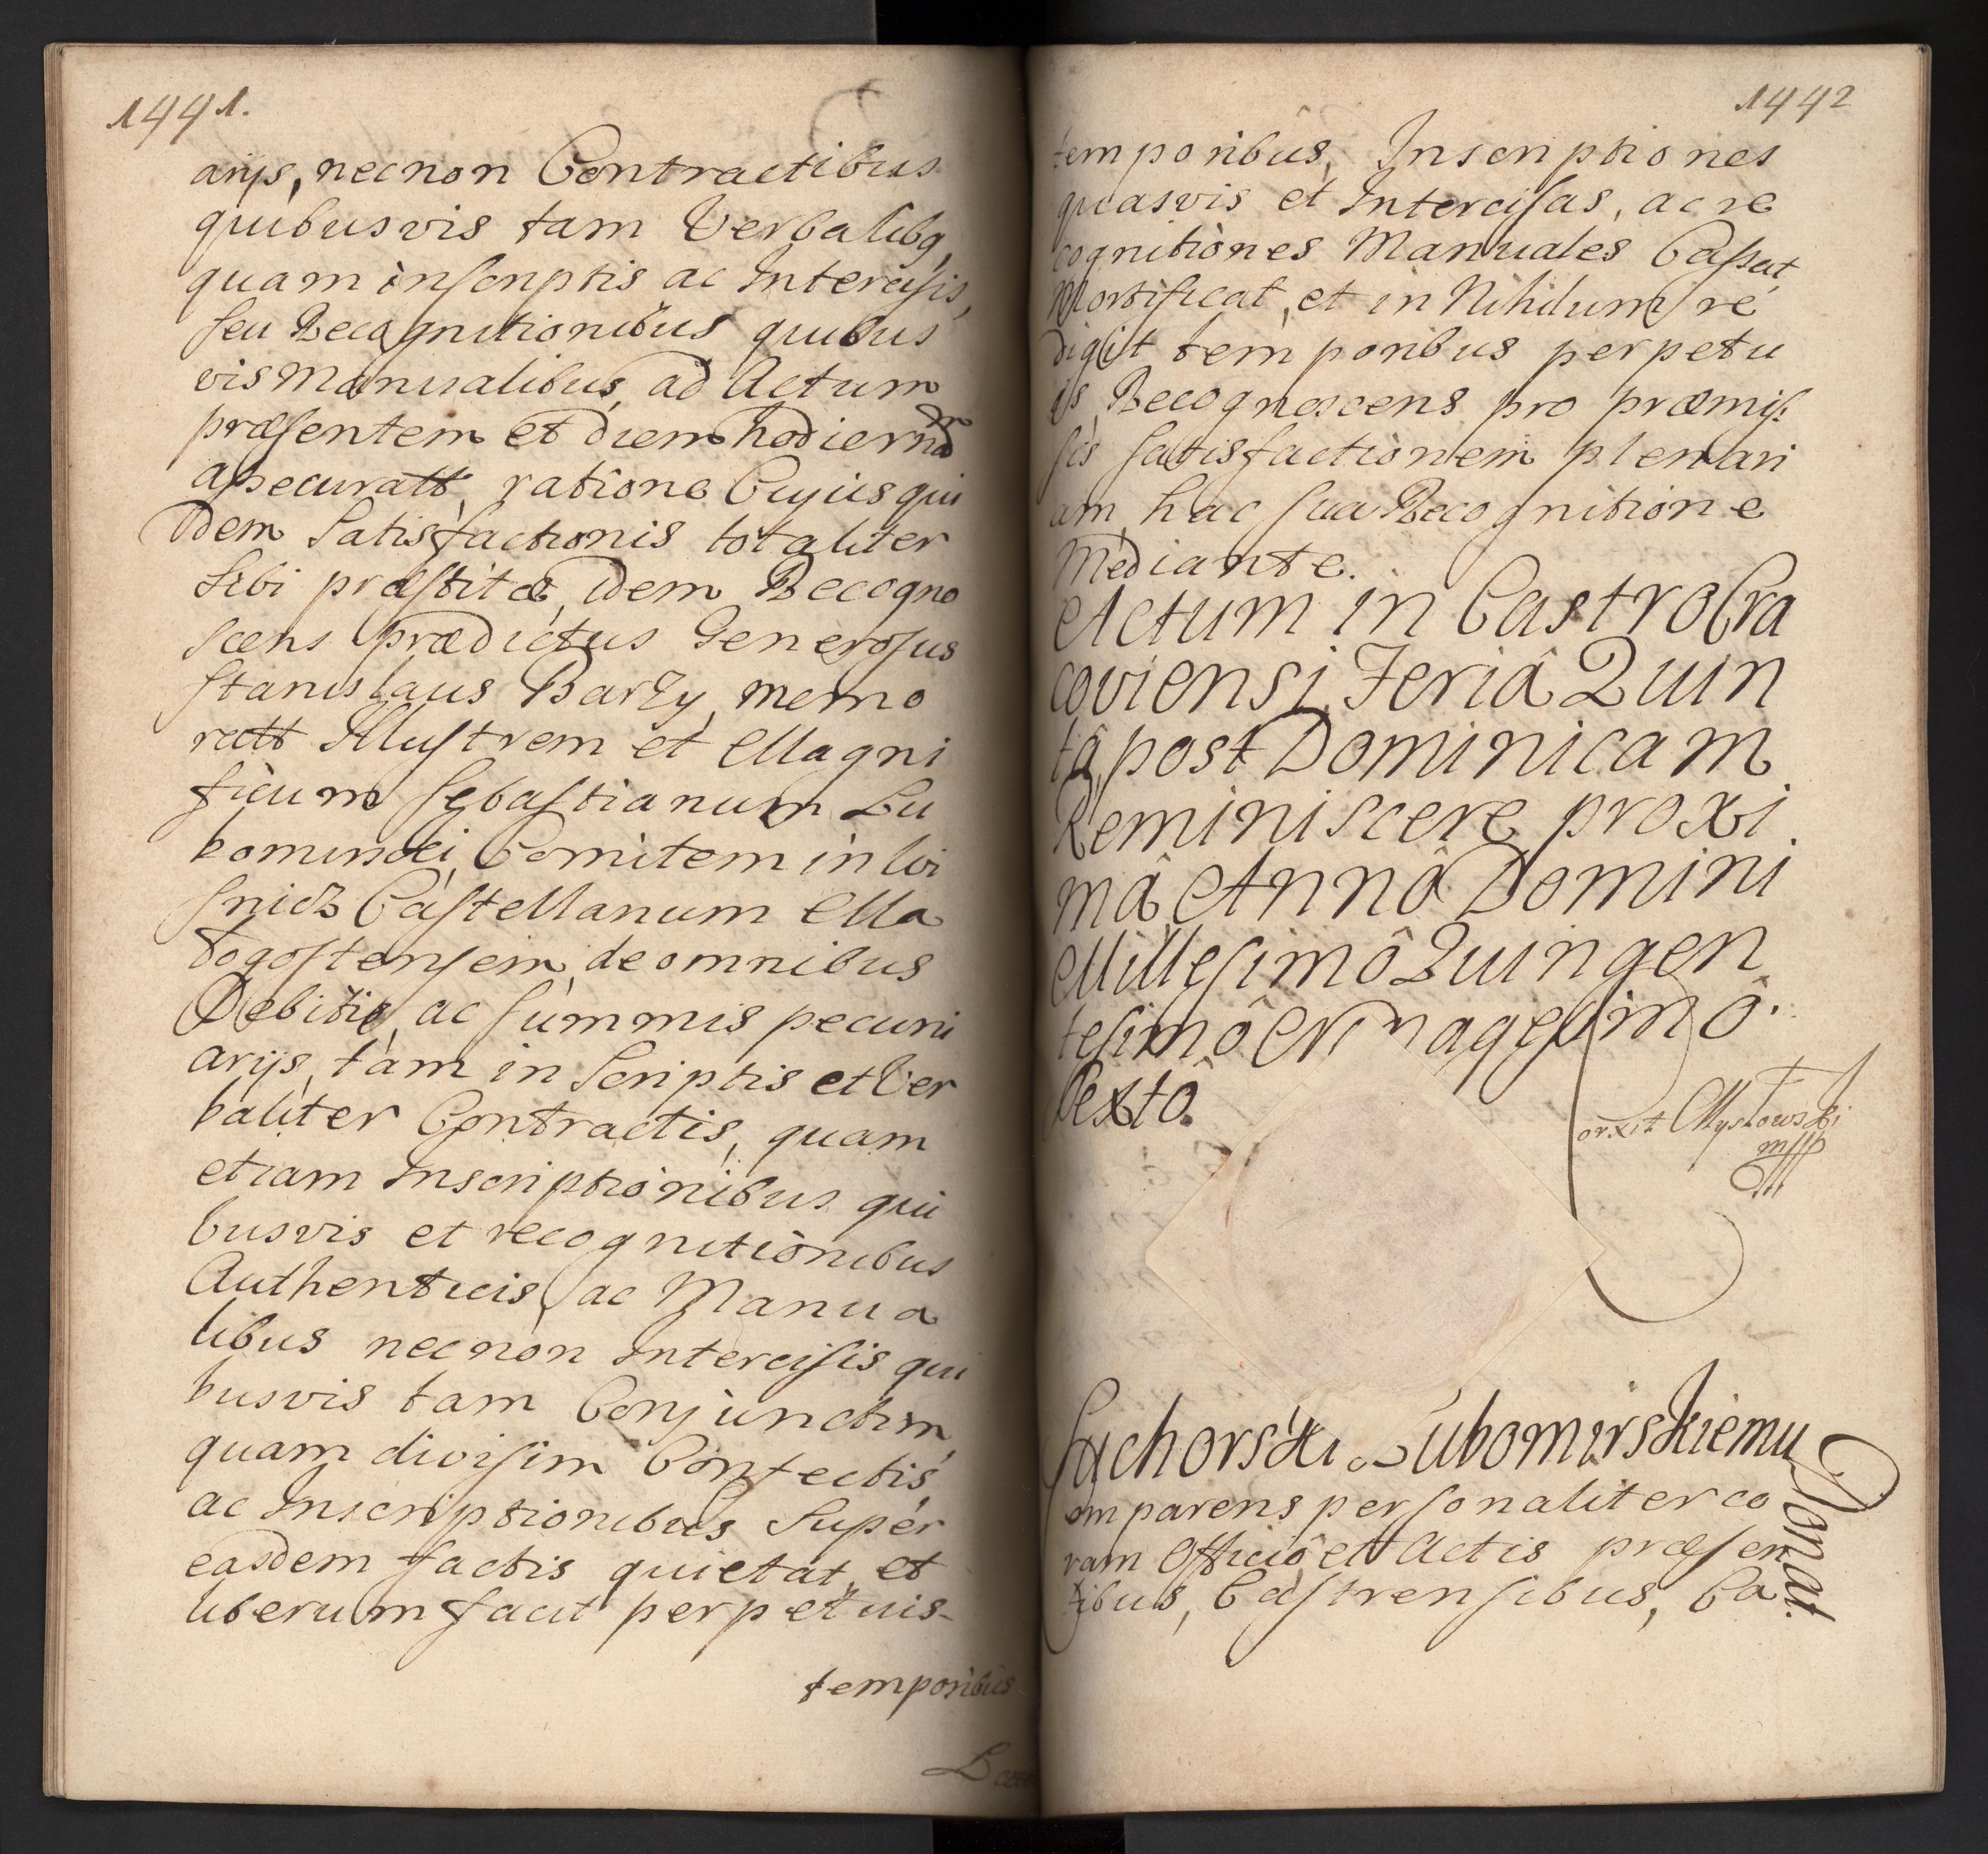 1441.
arijs, necnon Contractibus
quibusvis tam Verbalibq,
quam inscriptis ac Intercisis,
seu Recognitionibus quibus
vis Manualibus, ad Actum
præsentem et diem hodiernam
assecuratt, ratione Cujusqui
dem Satisfactionis totaliter
Sibi præstitæ, idem Recogno
scens prædictus Generosus
Stanislaus Barzy, memo
ratt Illustrem et Magni
ficum Sebastianum Lu
bomirski, Comitem in Wi
snicz Castellanum Ma
togostensem, de omnibus
Debitis, ac summis pecuni
arijs, tam in Scriptis et Ver
baliter Contractis, quam
etiam Inscriptionibus qui
busvis et recognitionibus
Authenticis, ac Manua
libus necnon Intercisis qui
busvis tam Conjunctim,
quam divisim Confectis,
ac Inscriptionibus Super
easdem factis quietat, et
liberum facit perpetuis-
temporibus
1442
temporibûs, Inscriptiones
quasvis et Intercisas, ac re
cognitiones Manuales Cassat,
Mortificat, et in Nihilum re
digit temporibus perpetu
is, Recognoscens pro præmis:
sis satisfactionem plenari
am, hac sua Recognitione
Mediante.
Actum in Castro Cra
coviensi, Feriâ Quin
tâ, post Dominicam
Reminiscere proxi
mâ, Annô Domini
Millesimô Quingen
tesimô Nonagesimô.
Sextô.
orxit Mysłowski
mpp
Suchorski Lubomirskiemu
Donat.
omparens personaliter co
ram Officiô et Actis præsen
tibus, Castrensibus, Ca